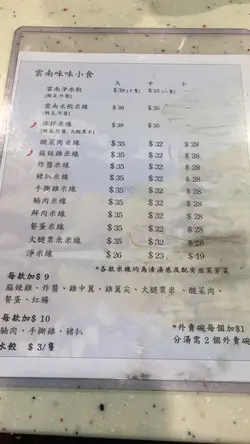 雲南味味小食
大 中 小
雲南淨水餃 $39(大隻) $33(八隻)
(韮菜,炸醬)
雲南水餃米線 $39 $35
(韮菜,炸醬)
涼拌米線 $39 $35
(韮菜,炸醬,大腿菓米)
酸菜肉米線 $35 $32 $28
麻辣雞米線 $35 $32 $28
炸醬米線 $35 $32 $28
豬扒米線 $35 $32 $28
手撕雞米線 $35 $32 $28
腩肉米線 $35 $32 $28
鮮肉米線 $35 $32 $28
餐蛋米線 $35 $32 $28
火腿粟米米線 $35 $32 $28
淨米線 $26 $23 $19
*各款米線均為清湯底及配有韮菜芽菜
每款加$ 9
麻辣雞、炸醬、雞中翼、雞翼尖、火腿粟米、酸菜肉、
餐蛋、紅腸
每款加$ 10
腩肉、手撕雞、豬扒
水餃 $ 3/隻
*外賣碗每個加$1
分湯需2個外賣